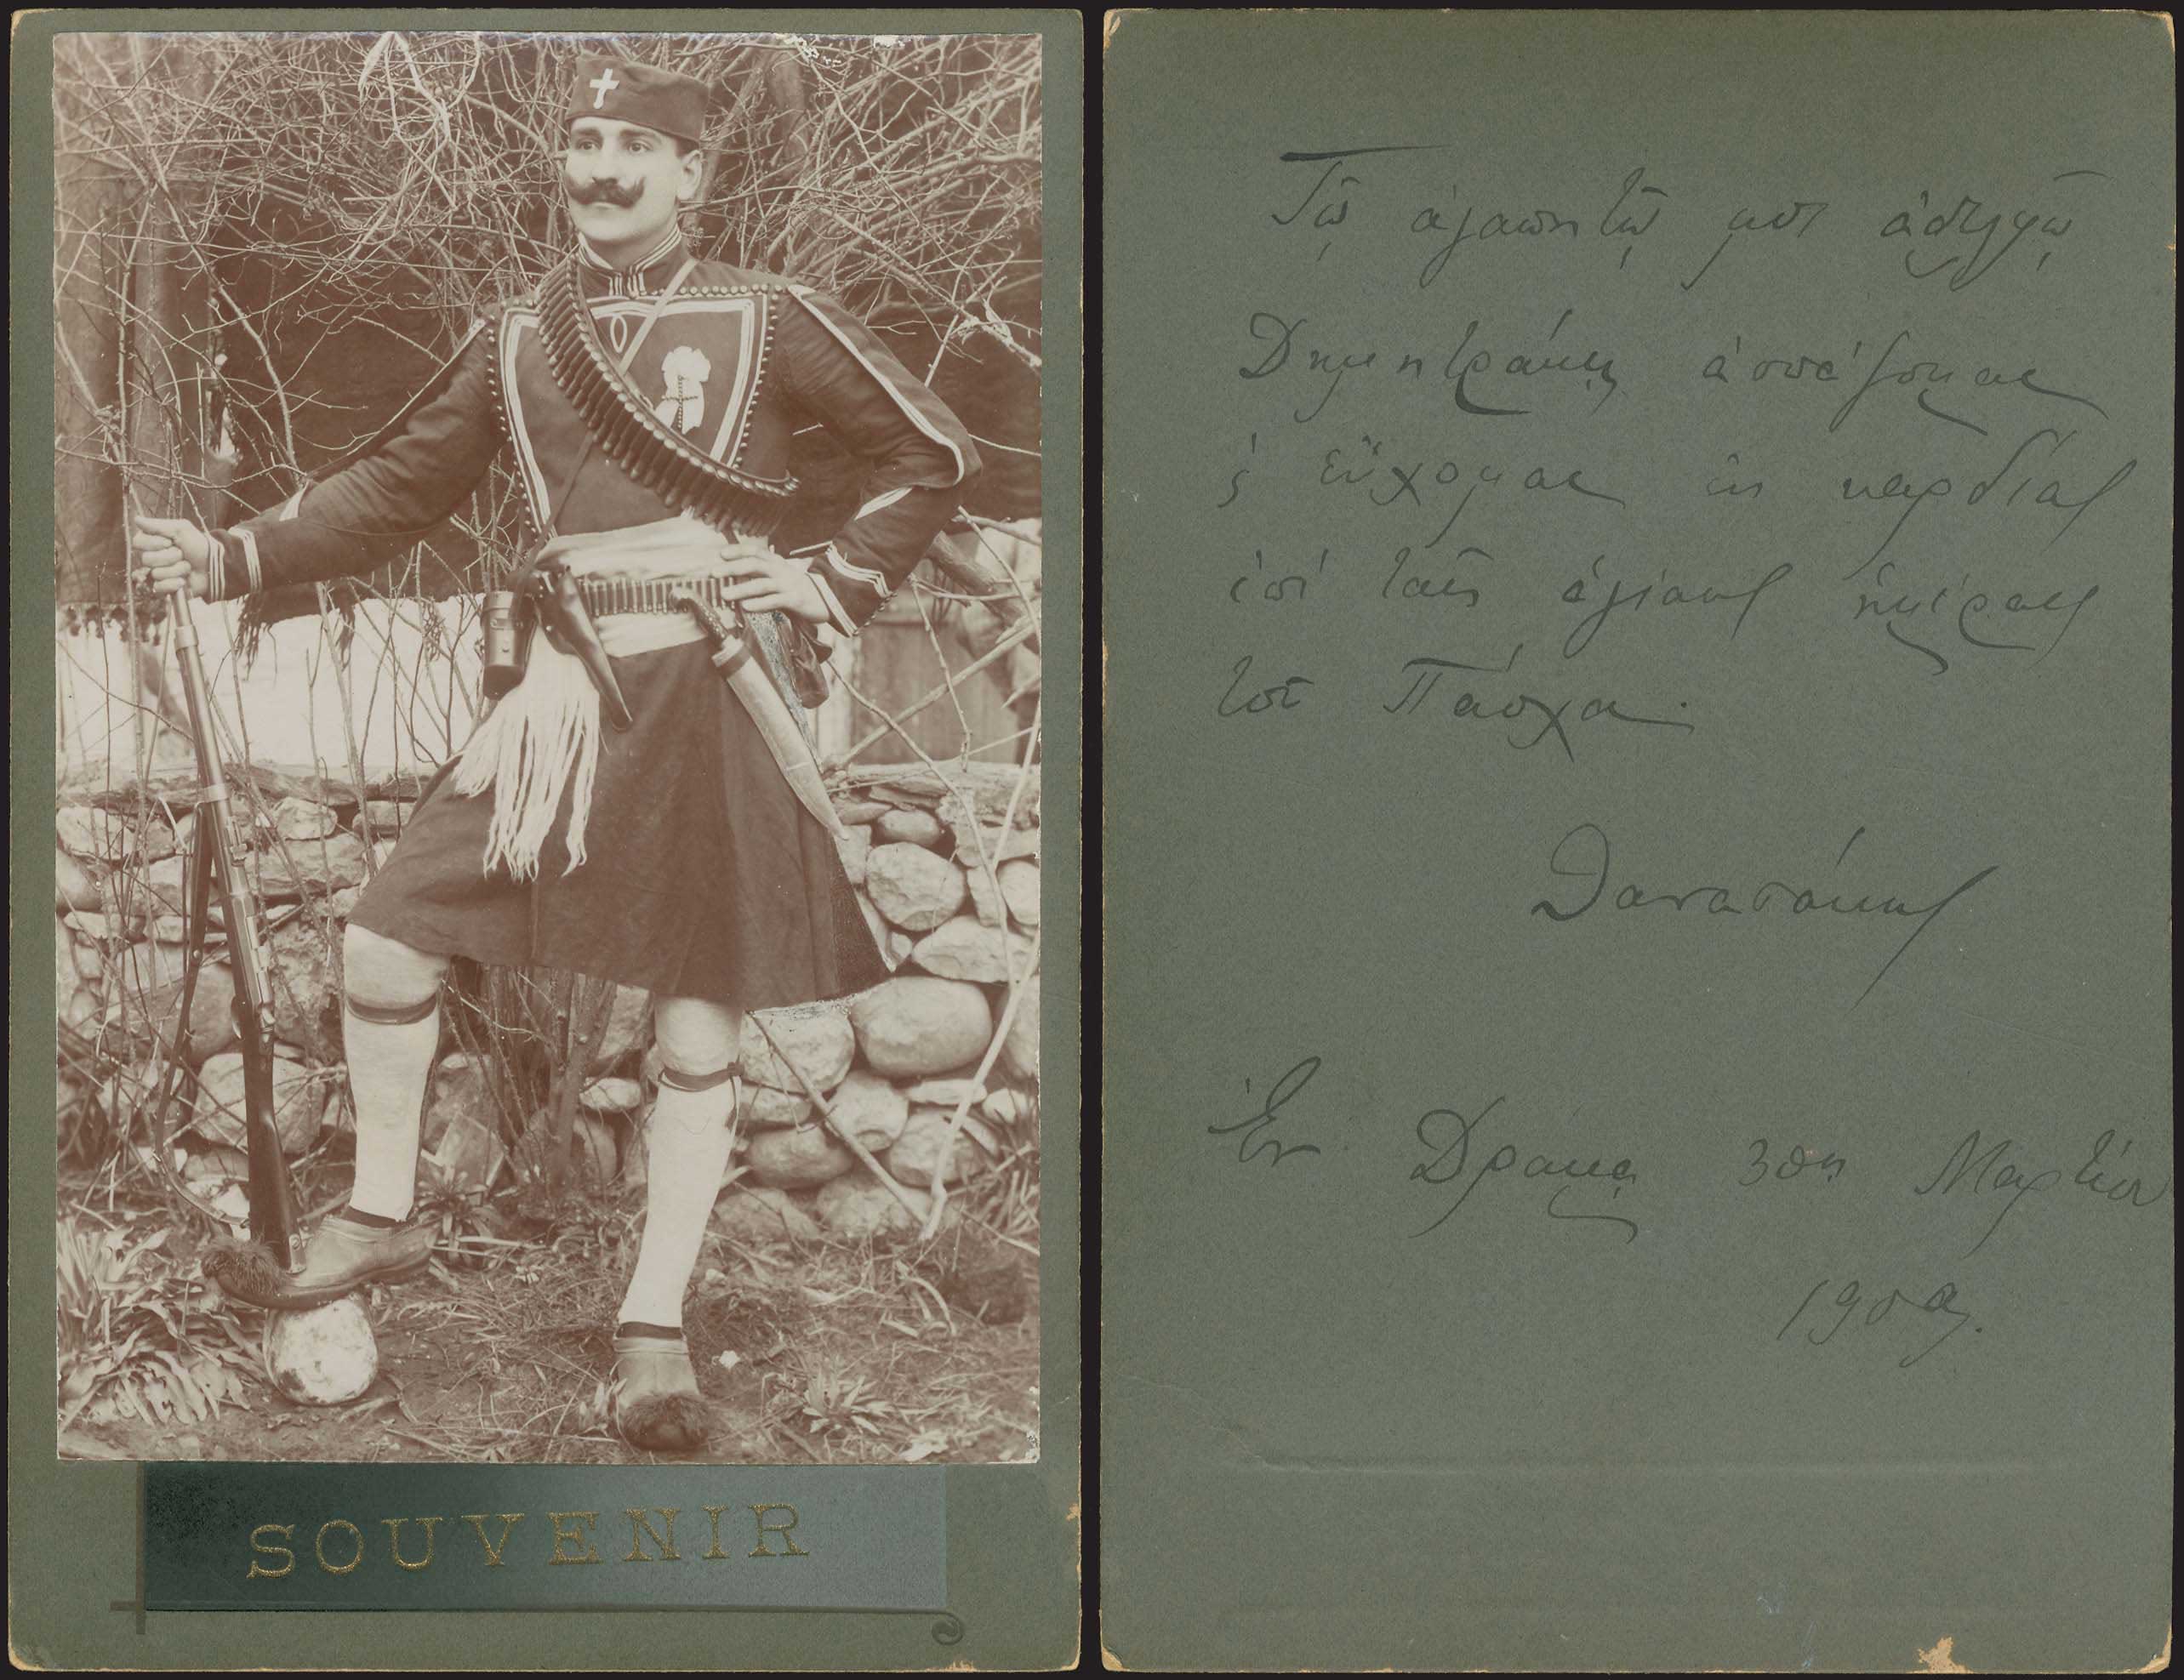 SOUVENIR
Τῷ ἀγαπητῷ μοι ἀδελφῷ
Δημητράκῃ ἀσπάζομαι
ϗ εὔχομαι ἐκ καρδίας
ἐπὶ ταῖς ἁγίαις ἡμέραις
τοῦ Πάσχα.
Θανασάκης
Ἐν Δράμᾳ 30ῃ Μαρτίου